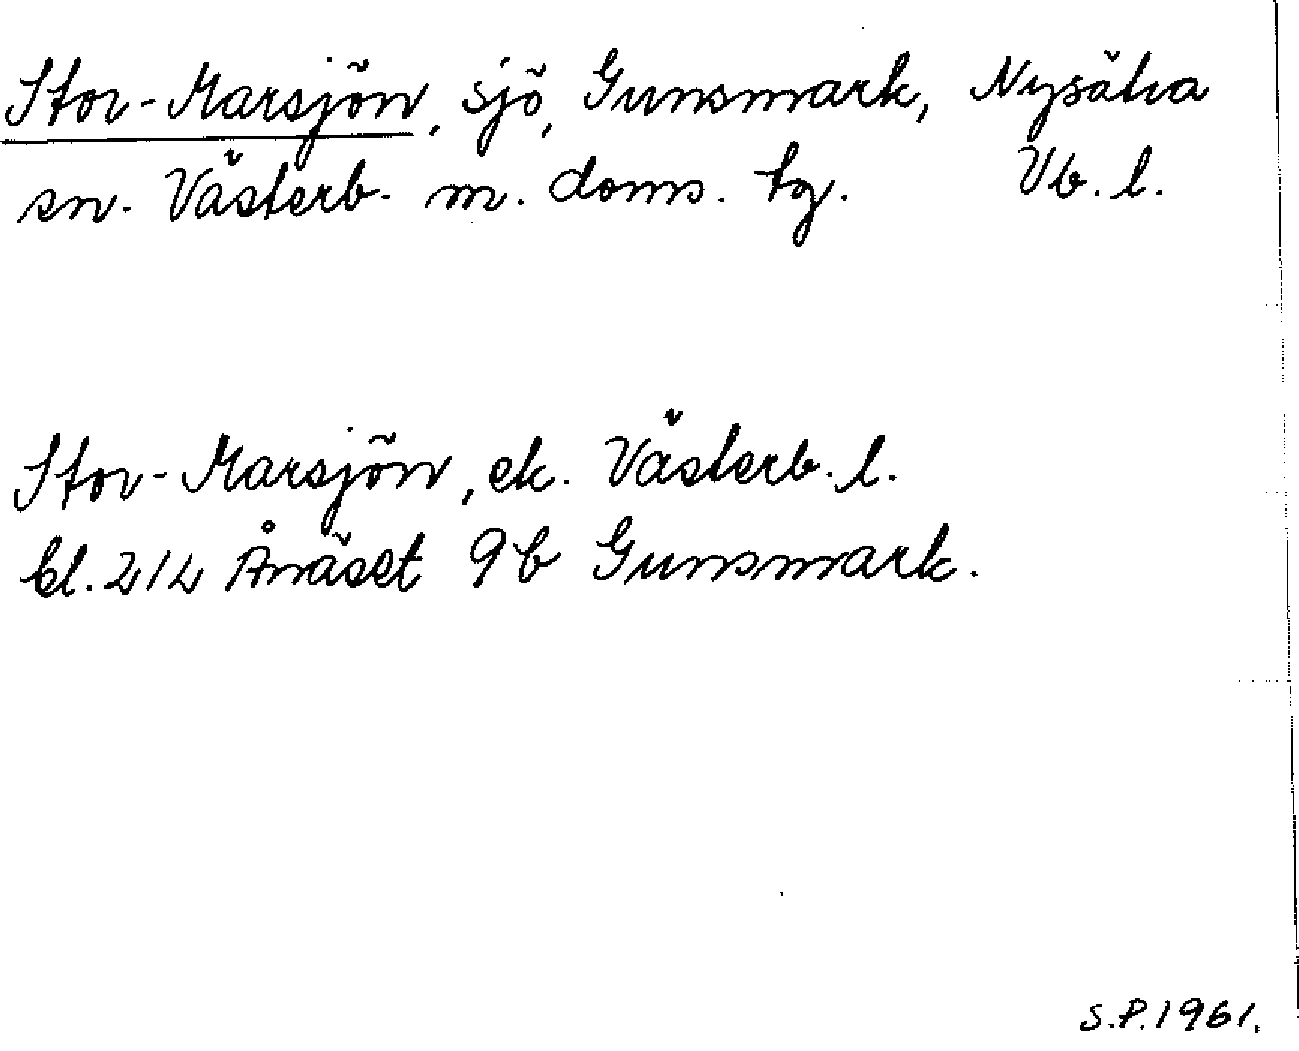 Stor-Marsjön, sjö, Gunsmark, Nysätra
sn. Västerb. m. doms. tg. Vb. l.
Stor-Marsjön, ek. Västerb. l.
bl. 212 Ånäset 9b Gunsmark.
S.P. 1961.